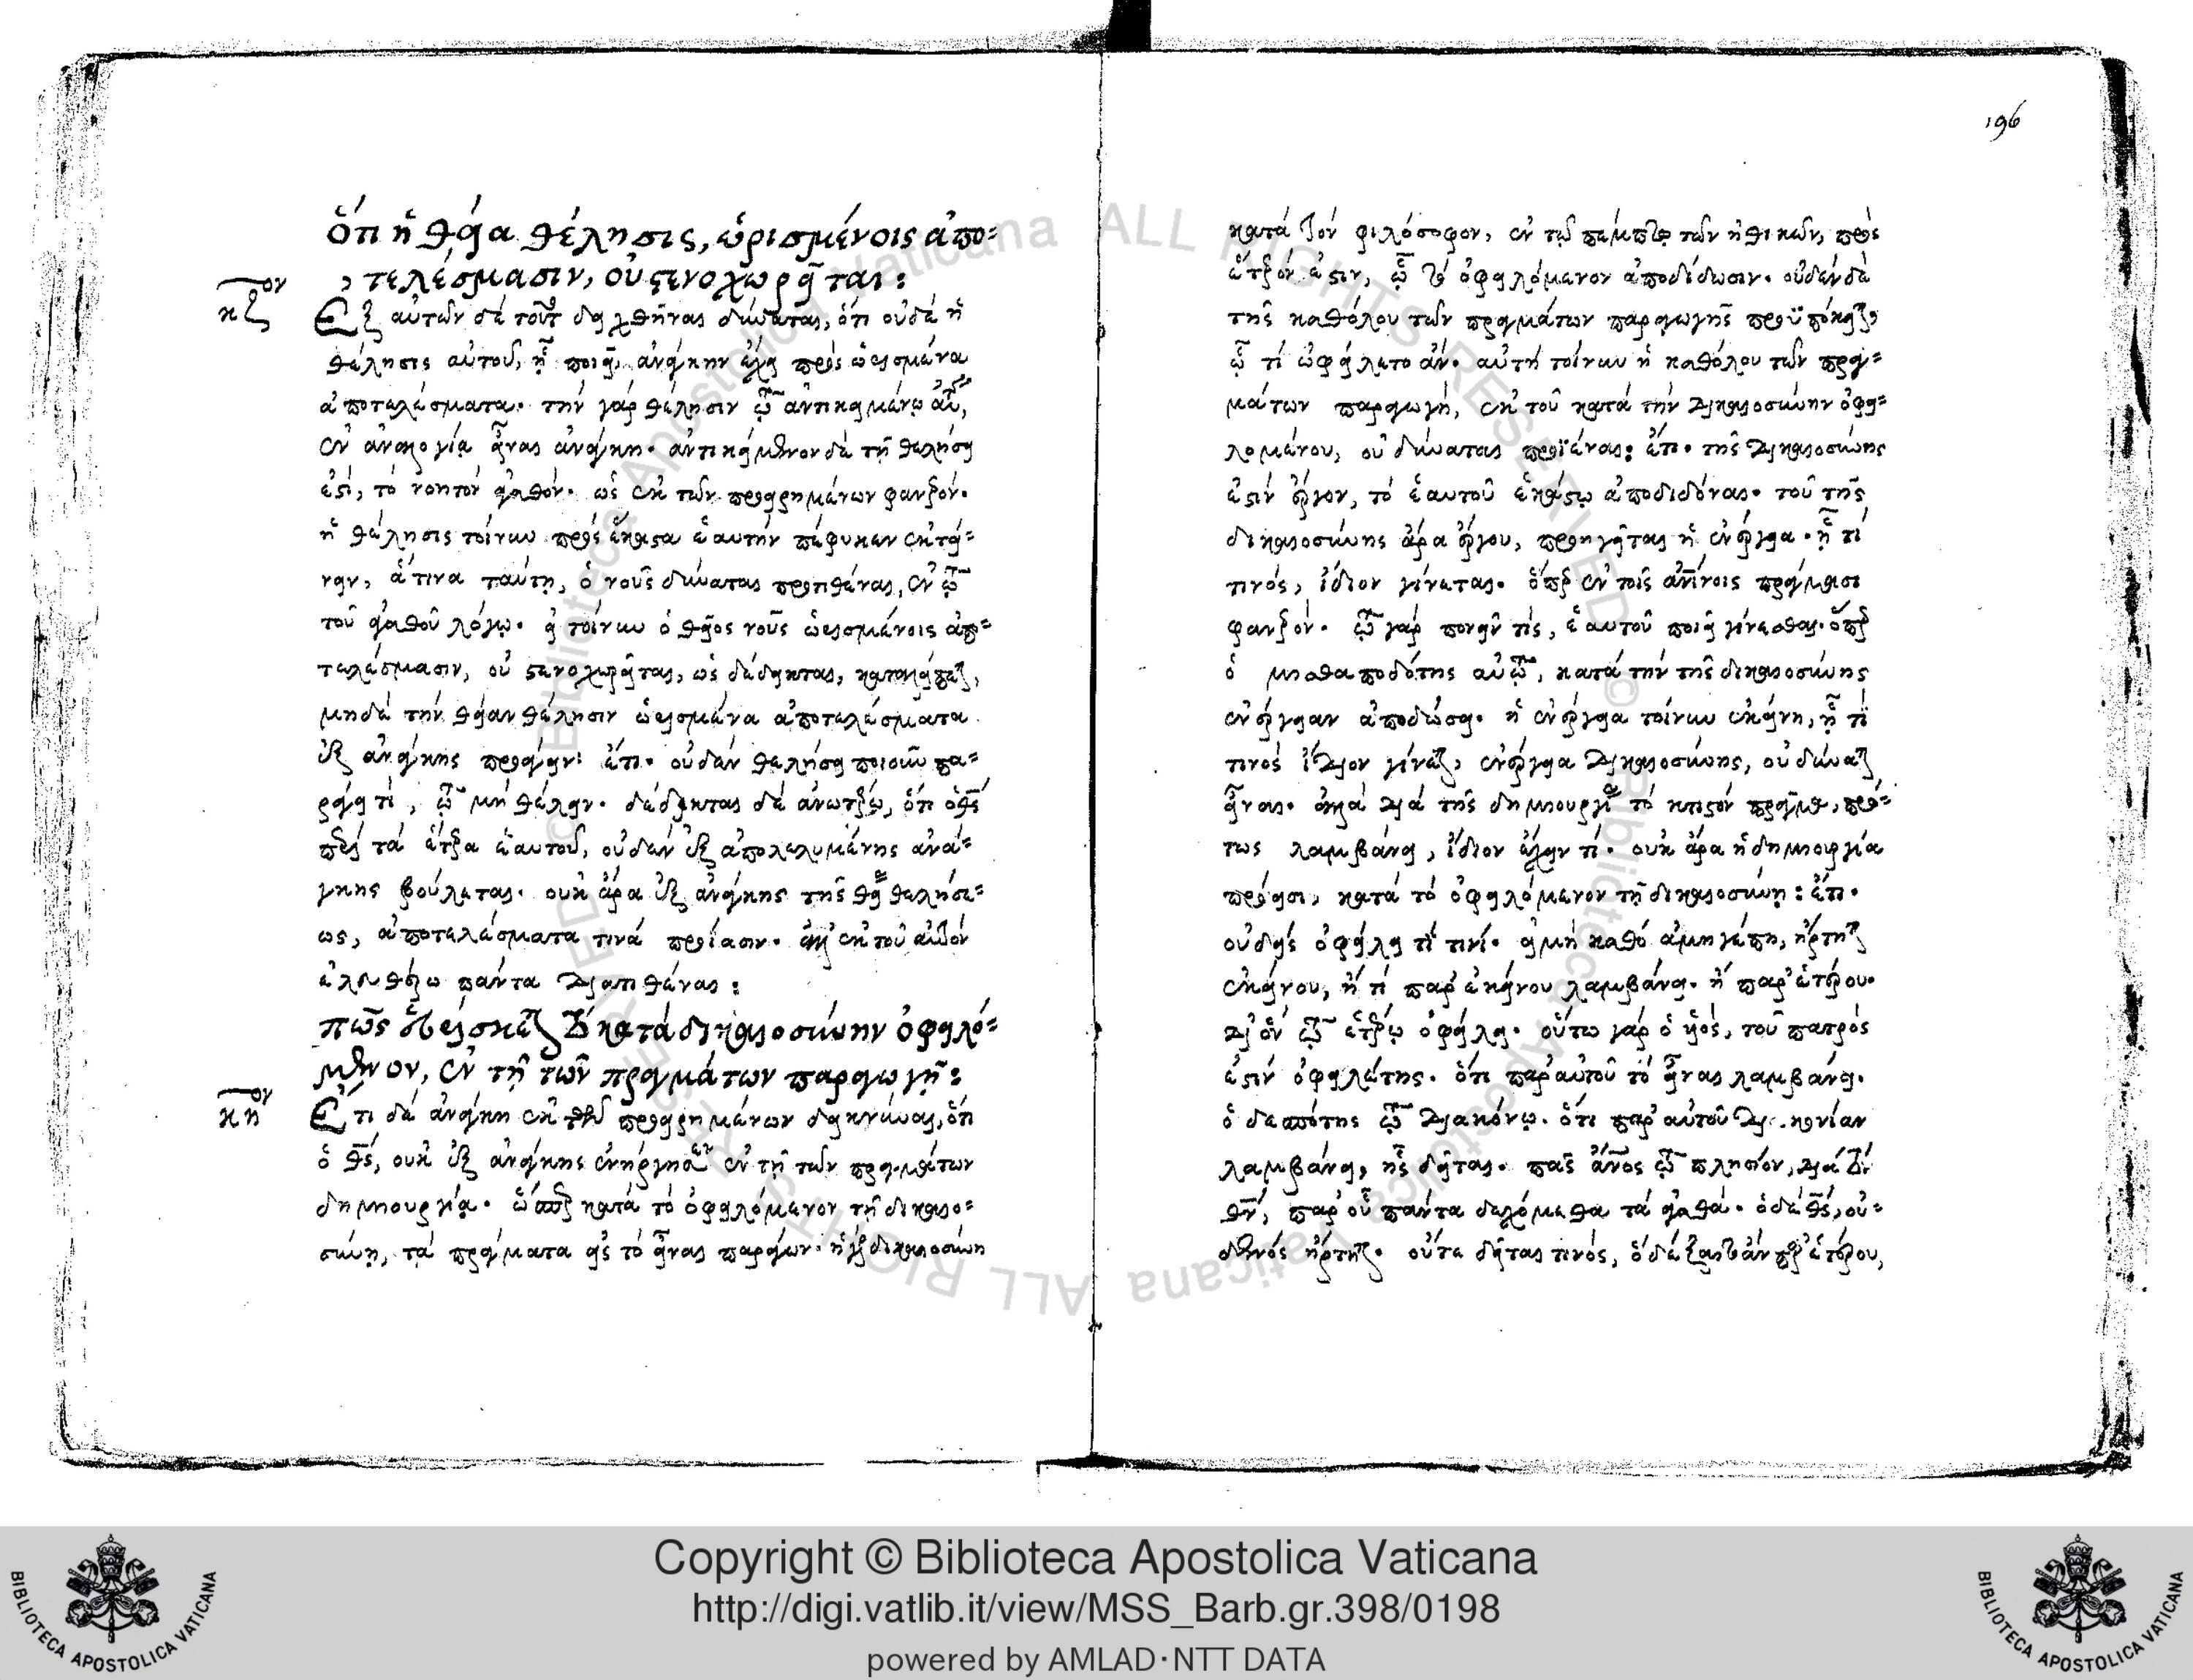 ὅτι ἡ θεία θέλησις, ὡρισμένοις ἀπο=
τελέσμασιν, οὐ στενοχωρεῖται:
κζον Ἐξ αὐτῶν δὲ τούτων δειχθῆναι δύναται, ὅτι οὐδὲ ἡ
θέλησις αὐτοῦ, ᾗ ποιεῖ, ἀνάγκην ἔχει πρὸς ὡρισμένα
ἀποτελέσματα. τὴν γὰρ θέλησιν τῷ ἀντικειμένῳ αὐτῆς,
ἐν ἀναλογίᾳ εἶναι ἀνάγκη. ἀντικείμενον δὲ τῇ θελήσει
ἐστὶ, τὸ νοητὸν ἀγαθόν. ὡς ἐκ τῶν προειρημένων φανερόν.
ἡ θέλησις τοίνυν πρὸς ἕκαστα ἑαυτὴν πέφυκεν ἐκτεί=
νειν, ἅτινα ταύτῃ, ὁ νοῦς δύναται προτιθέναι, ἐν τῷ
τοῦ ἀγαθοῦ λόγῳ. εἰ τοίνυν ὁ θεῖος νοῦς ὡρισμένοις ἀπο=
τελέσμασιν, οὐ στενοχωρεῖται, ὡς δέδεικται, καταλείπεται,
μηδὲ τὴν θείαν θέλησιν ὡρισμένα ἀποτελέσματα
ἐξ ἀνάγκης προάγειν: ἔτι. οὐδὲν θελήσει ποιοῦν πα=
ράγει τὶ, τῷ μὴ θέλειν. δέδεικται δὲ ἀνωτέρω, ὅτι ὁ θς
περὶ τὰ ἕτερα ἑαυτοῦ, οὐδὲν ἐξ ἀπολελυμένης ἀνά=
γκης βούλεται. οὐκ ἄρα ἐξ ἀνάγκης τῆς θείας θελήσε=
ως, ἀποτελέσματα τινὰ προίασιν. ἀλλ' ἐκ τοῦ αὐτὸν
ἐλευθέρω πάντα διατιθέναι:
πῶς εὑρίσκεται τὸ κατὰ δικαιοσύνην ὀφειλό=
μενον, ἐν τῇ τῶν πραγμάτων παραγωγῇ:
κηον Ἔτι δὲ ἀνάγκη ἐκ τῶν προειρημένων δεικνύναι, ὅτι
ὁ θς, οὐκ ἐξ ἀνάγκης ἐνήργησεν ἐν τῇ τῶν πραγμάτων
δημιουργίᾳ. ὥσπερ κατὰ τὸ ὀφειλόμενον τῇ δικαιο=
σύνῃ, τὰ πράγματα εἰς τὸ εἶναι παράγων. ἡ γὰρ δικαιοσύνη
196
κατὰ τὸν φιλόσοφον, ἐν τῷ πέμπτῳ τῶν ἠθικῶν, πρὸς
ἕτερόν ἐστιν, ᾧ τὸ ὀφειλόμενον ἀποδίδωσιν. οὐδὲν δὲ
τῆς καθόλου τῶν πραγμάτων παραγωγῆς προϋπόκειται,
ᾧ τὶ ὠφείλετο ἄν. αὐτὴ τοίνυν ἡ καθόλου τῶν πραγ=
μάτων παραγωγὴ, ἐκ τοῦ κατὰ τὴν δικαιοσύνην ὀφει=
λομένου, οὐ δύναται προϊέναι: ἔτι. τῆς δικαιοσύνης
ἐστὶν ἔργον, τὸ ἑαυτοῦ ἑκάστῳ ἀποδιδόναι. τοῦ τῆς
δικαιοσύνης ἄρα ἔργου, προηγεῖται ἡ ἐνέργεια. ᾗ τί
τινός, ἴδιον γίνεται. ὅπερ ἐν τοῖς ἀνίνοις πράγμασι
φανερόν. τῷ γὰρ πονεῖν τίς, ἑαυτοῦ ποιεῖ γίνεσθαι. ὅπερ
ὁ μισθαποδότης αὐτῷ, κατὰ τὴν τῆς δικαιοσύνης
ἐνέργειαν ἀποδώσει. ἡ ἐνέργεια τοίνυν ἐκείνη, ᾗ τί
τινὸς ἴδιον γίνεται, ἐνέργεια δικαιοσύνης, οὐ δύναται
εἶναι. ἀλλὰ διὰ τῆς δημιουργίας τὸ κτιστὸν πρᾶγμα, πρώ=
τως λαμβάνει, ἴδιον ἔχειν τί. οὐκ ἄρα ἡ δημιουργία
πρόεισι, κατὰ τὸ ὀφειλόμενον τῇ δικαιοσύνῃ: ἔτι.
οὐδεὶς ὀφείλει τί τινί. εἰ μὴ καθὸ ἀμηγέπῃ, ἤρτηται
ἐκείνου, ἤ τι παρ' ἐκείνου λαμβάνει. ἢ παρ' ἑτέρου.
δι' ὃν τῷ ἑτέρῳ ὀφείλει. οὕτω γὰρ ὁ υἱὸς, τοῦ πατρὸς
ἐστὶν ὀφειλέτης. ὅτι παρ' αὐτοῦ τὸ εἶναι λαμβάνει.
ὁ δεσπότης τῷ διακόνῳ. ὅτι παρ' αὐτοῦ διακονίαν
λαμβάνει, ἧς δεῖται. πᾶς ἄνος τῷ πλησίον, διὰ τὸν
θν, παρ' οὗ πάντα δεχόμεθα τὰ ἀγαθά. ὁ δὲ θς, οὐ=
δενὸς ἤρτηται. οὔτε δεῖται τινός,